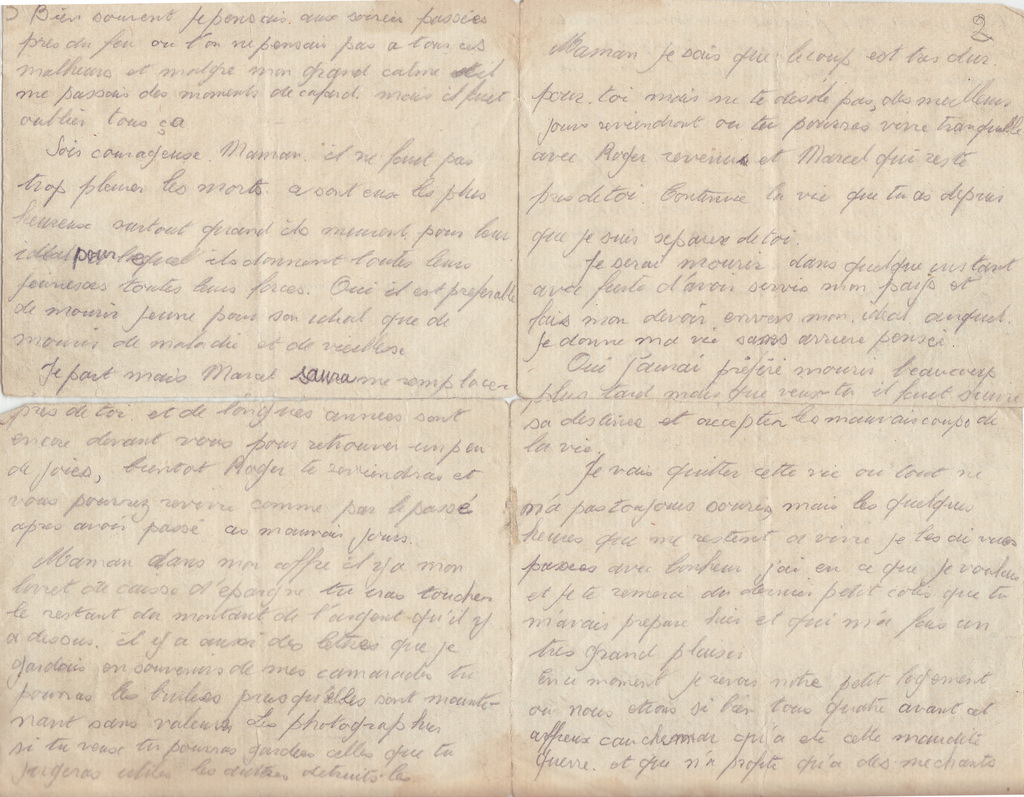 2
Maman je sais que le coup est tres dur
pour toi mais ne te desole pas, des meilleurs
jours reviendront ou tu pourras vivre tranquille
avec Roger revenue et Marcel qui reste
pres de toi. Continue la vie que tu as depuis
que je suis separer de toi.
Je serai mourir dans quelque instant
avec fierte d'avoir servis mon pays et
fais mon devoir envers mon ideal auquel
je donne ma vie sans arriere pensei.
Oui j'aurai préféré mourir beaucoup
plus tard mais que veux-tu il faut suivre
sa destinée et accepter les mauvais coups de
la vie.
Je vais quitter cette vie ou tout ne
m'a pas toujours souris, mais les quelques
heures que me restent a vivre je les ai
passées avec bonheur j'ai eu ce que je voulais
et je te remerci du dernier petit colis que tu
m'avais prepare hier et qui m'a fais un
tres grand plaisir
En ce moment je revois notre petit logement
ou nous etions si bien tous quatre avant cet
affreux cauchemar qu'a ete cette maudite
guerre. et que n'a profite qu'a des mechants
3 Bien souvent je pensais aux soirées passées
pres du feu ou l'on ne pensais pas a tous ces
malheurs et malgre mon grand calme il
me passais des moments de cafard. mais il faut
oublier tous ça
Sois courageuse Maman. il ne faut pas
trop pleurer les morts. ce sont eux les plus
heureux surtout quand ils meurent pour leur
ideal pour lequel ils donnent toutes leurs
jeunesses toutes leurs forces. Oui il est préférable
de mourir jeune pour son ideal que de
mourir de maladie et de vieillesse
Je part mais Marcel saura me remplacer
pres de toi et de longues années sont
encore devant vous pour retrouver un peu
de joies, bientot Roger te reviendras et
vous pourrez revivre comme par le passé
apres avoir passé ces mauvais jours.
Maman dans mon coffre il y a mon
livret de caisse d'epargne tu iras toucher
le restant du montant de l'argent qu'il y
a dessus. il y a aussi des lettres que je
gardais en souvenirs de mes camarades tu
pourras les brulees puisqu'elles sont mainte-
nant sans valeurs Les photographies
si tu veux tu pourras garder celles que tu
jugeras utiles les autres detruits les